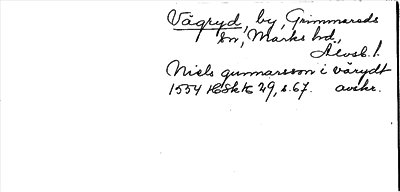 Vägryd, by, Grimmareds
sn, Marks hd.,
Älvsb. l.
Niels gunnarsson i värydt
1554 HSkH 29, s. 67. avskr.